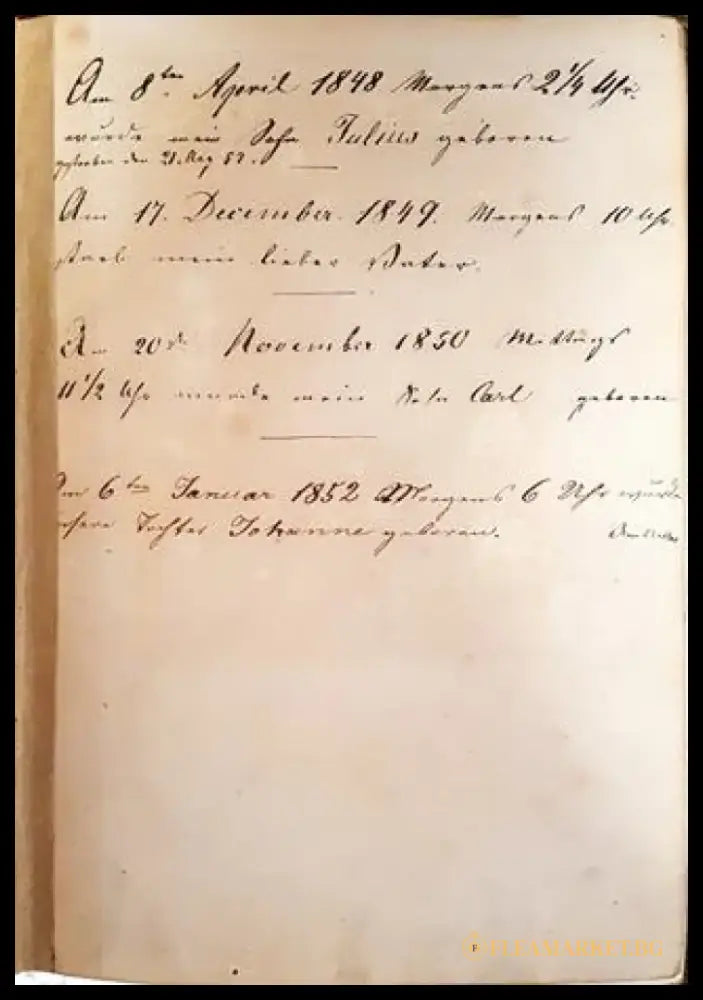 Am 8ten April 1848 Morgens 2 1/4 Uhr.
wurde mein Sohn Julius geboren
gestorben den 21. May 52.
Am 17. December. 1849. Morgens 10 Uhr
starb mein lieber Vater.
Am 20ten November 1850 Mittags
11 1/2 Uhr wurde mein Sohn Carl geboren
Am 6ten Januar 1852 Morgens 6 Uhr wurde
unsere Tochter Johanne geboren.
FLEAMARKET.BG